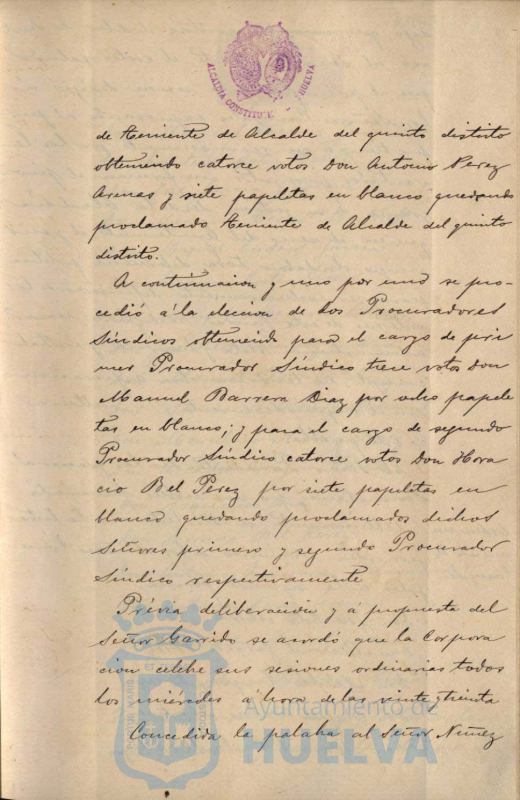 ALCALDIA CONSTITU HUELVA
de teniente de Alcalde del quinto distrito
obteniendo catorce votos Don Antonio Perez
Arenas y siete papeletas en blanco quedando
proclamado teniente de Alcalde del quinto
distrito.
A continuacion y uno por uno se pro-
cedió á la eleccion de dos Procuradores
Síndicos obteniendo para el cargo de pri
mer Procurador Síndico trece votos Don
Manuel Barrera Diaz por ocho papele
tas en blanco; y para el cargo de segundo
Procurador Síndico catorce votos Don Hora
cio Bel Perez por siete papeletas en
blanco quedando proclamados dichos
Señores primero y segundo Procurador
Síndico respectivamente
Prévia deliberacion y á propuesta del
Señor Garrido se acordó que la Corpora
cion celebre sus sesiones ordinarias todos
los miércoles á hora de las veinte y treinta
Concedida la palabra al Señor Nuñez
Ayuntamiento de
HUELVA